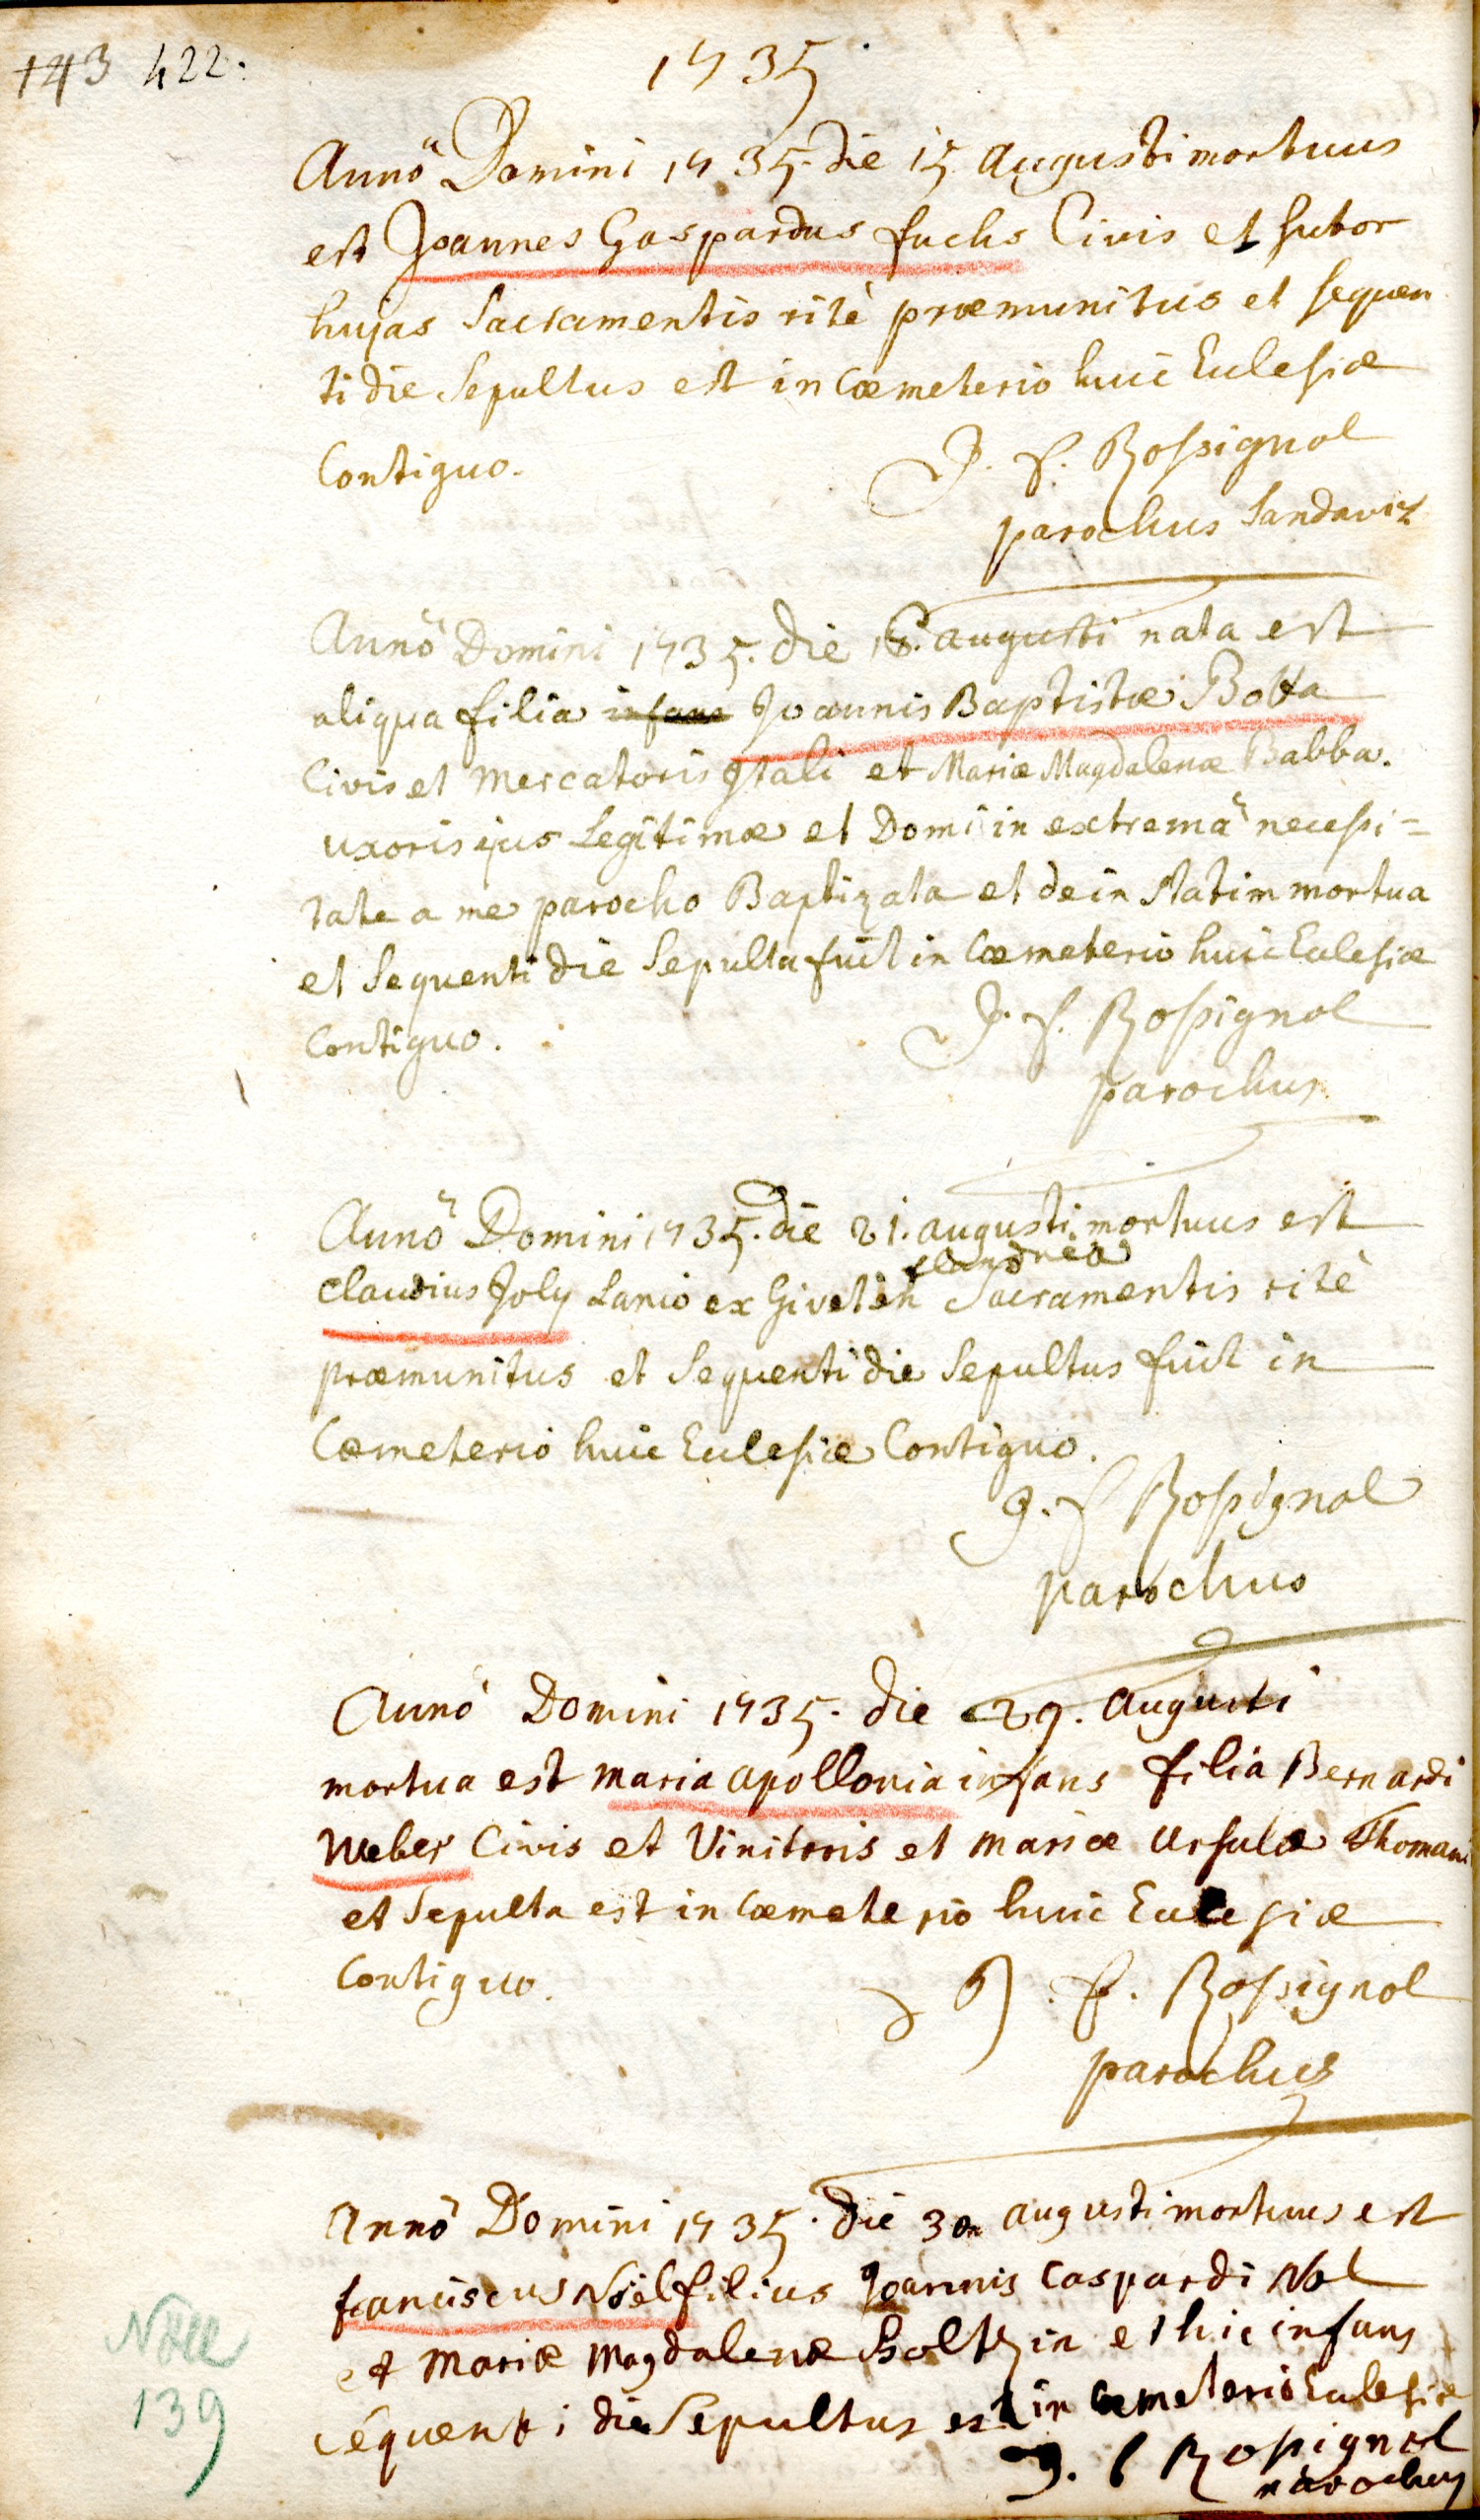 143 422.
1735
Annô Domini 1735. die 15 Augusti mortuus
est Joannes Gaspardus fuchs Civis et sutor
hujas Sacramentis ritè præmunitus et sequen
ti die Sepultus est in Cœmeterio huic Eclesiæ
Contiguo.
J. f. Rossignol
parochus Landaviz
Annô Domini 1735. die 18. augusti nata est
aliqua filia infans Joannis Baptistæ Botta
Civis et Mercatoris Itali et Mariæ Magdalenæ Babba.
uxoris ejus Legitimæ et Domi in extremâ necessi=
tate a me parocho Baptizata et dein statim mortua
et Sequenti die Sepulta fuit in Cœmeterio huic Eclesiæ
Contiguo.
J. f. Rossignol
parochus
Annô Domini 1735. die 21. augusti mortuus est
flandriâ
Claudius Joly Lanio ex Givet in Sacramentis ritè
præmunitus et Sequenti die Sepultus fuit in
Cœmeterio huic Eclesiæ Contiguo.
J. f Rossignol
parochus
Annó Domini 1735. die 29. Augusti
mortua est Maria Apollonia infans filia Bernardi
Weber Civis et Vinitoris et Mariæ Ursulæ Thomani
et Sepulta est in Cœmeterio huic Eclesiæ
Contiguo.
J. f. Rossignol
parochus
Annô Domini 1735. die 30 augusti mortuus est
franciscus Nöel filius Joannis Caspardi Nöel
et Mariæ Magdalenæ Holtzin et hic infans
séquenti die Sepultus est in Cœmeterio Eclesiæ
J. f Rossignol
parochus
Nöel
139